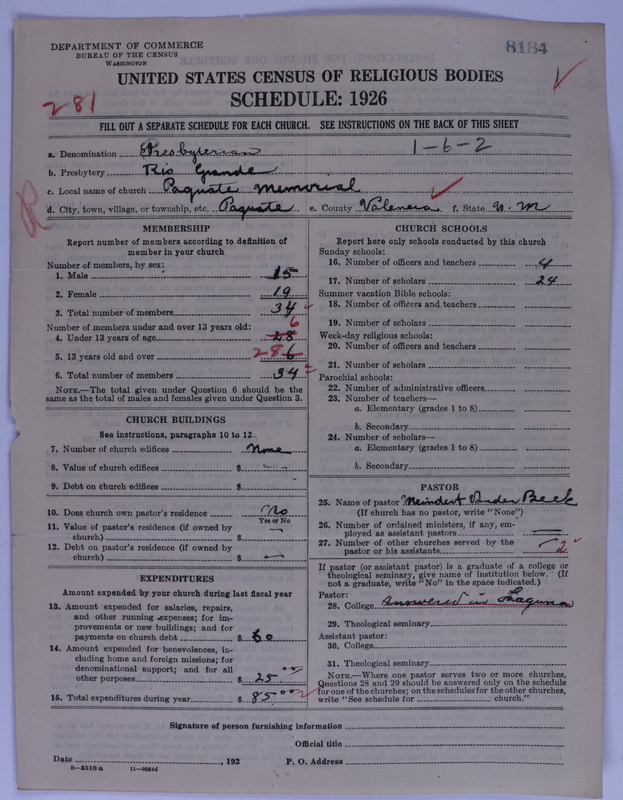 DEPARTMENT OF COMMERCE
BUREAU OF THE CENSUS
WASHINGTON
8184
UNITED STATES CENSUS OF RELIGIOUS BODIES
SCHEDULE: 1926
281
FILL OUT A SEPARATE SCHEDULE FOR EACH CHURCH. SEE INSTRUCTIONS ON THE BACK OF THIS SHEET
a. Denomination Presbyterian 1-6-2
b. Presbytery Rio Grande
c. Local name of church Paguate Memorial
d. City, town, village, or township, etc. Paguate e. County Valencia f. State N. M
MEMBERSHIP
Report number of members according to definition of
member in your church
Number of members, by sex:
1. Male 15
2. Female 19
3. Total number of members 34
Number of members under and over 13 years old: 6
4. Under 13 years of age 28
5. 13 years old and over 28 6
6. Total number of members 34
NOTE.—The total given under Question 6 should be the
same as the total of males and females given under Question 3.
CHURCH BUILDINGS
See instructions, paragraphs 10 to 12
7. Number of church edifices None
8. Value of church edifices $
9. Debt on church edifices $
10. Does church own pastor's residence No
Yes or No
11. Value of pastor's residence (if owned by
church) $
12. Debt on pastor's residence (if owned by
church) $
EXPENDITURES
Amount expended by your church during last fiscal year
13. Amount expended for salaries, repairs,
and other running expenses; for im-
provements or new buildings; and for
payments on church debt $ 60
14. Amount expended for benevolences, in-
cluding home and foreign missions; for
denominational support; and for all
other purposes $ 25 00
15. Total expenditures during year $ 85.00
CHURCH SCHOOLS
Report here only schools conducted by this church
Sunday schools:
16. Number of officers and teachers 4
17. Number of scholars 24
Summer vacation Bible schools:
18. Number of officers and teachers
19. Number of scholars
Week-day religious schools:
20. Number of officers and teachers
21. Number of scholars
Parochial schools:
22. Number of administrative officers
23. Number of teachers—
a. Elementary (grades 1 to 8)
b. Secondary
24. Number of scholars—
a. Elementary (grades 1 to 8)
b. Secondary
PASTOR
25. Name of pastor Meindert Vander Beek
(If church has no pastor, write "None")
26. Number of ordained ministers, if any, em-
ployed as assistant pastors
27. Number of other churches served by the
pastor or his assistants 2
If pastor (or assistant pastor) is a graduate of a college or
theological seminary, give name of institution below. (If
not a graduate, write "No" in the space indicated.)
Pastor:
28. College Answered in Laguna
29. Theological seminary
Assistant pastor:
30. College
31. Theological seminary
NOTE.—Where one pastor serves two or more churches,
Questions 28 and 29 should be answered only on the schedule
for one of the churches; on the schedules for the other churches,
write "See schedule for church."
Signature of person furnishing information
Official title
Date , 192 P. O. Address
8—5318 a 11—9054d